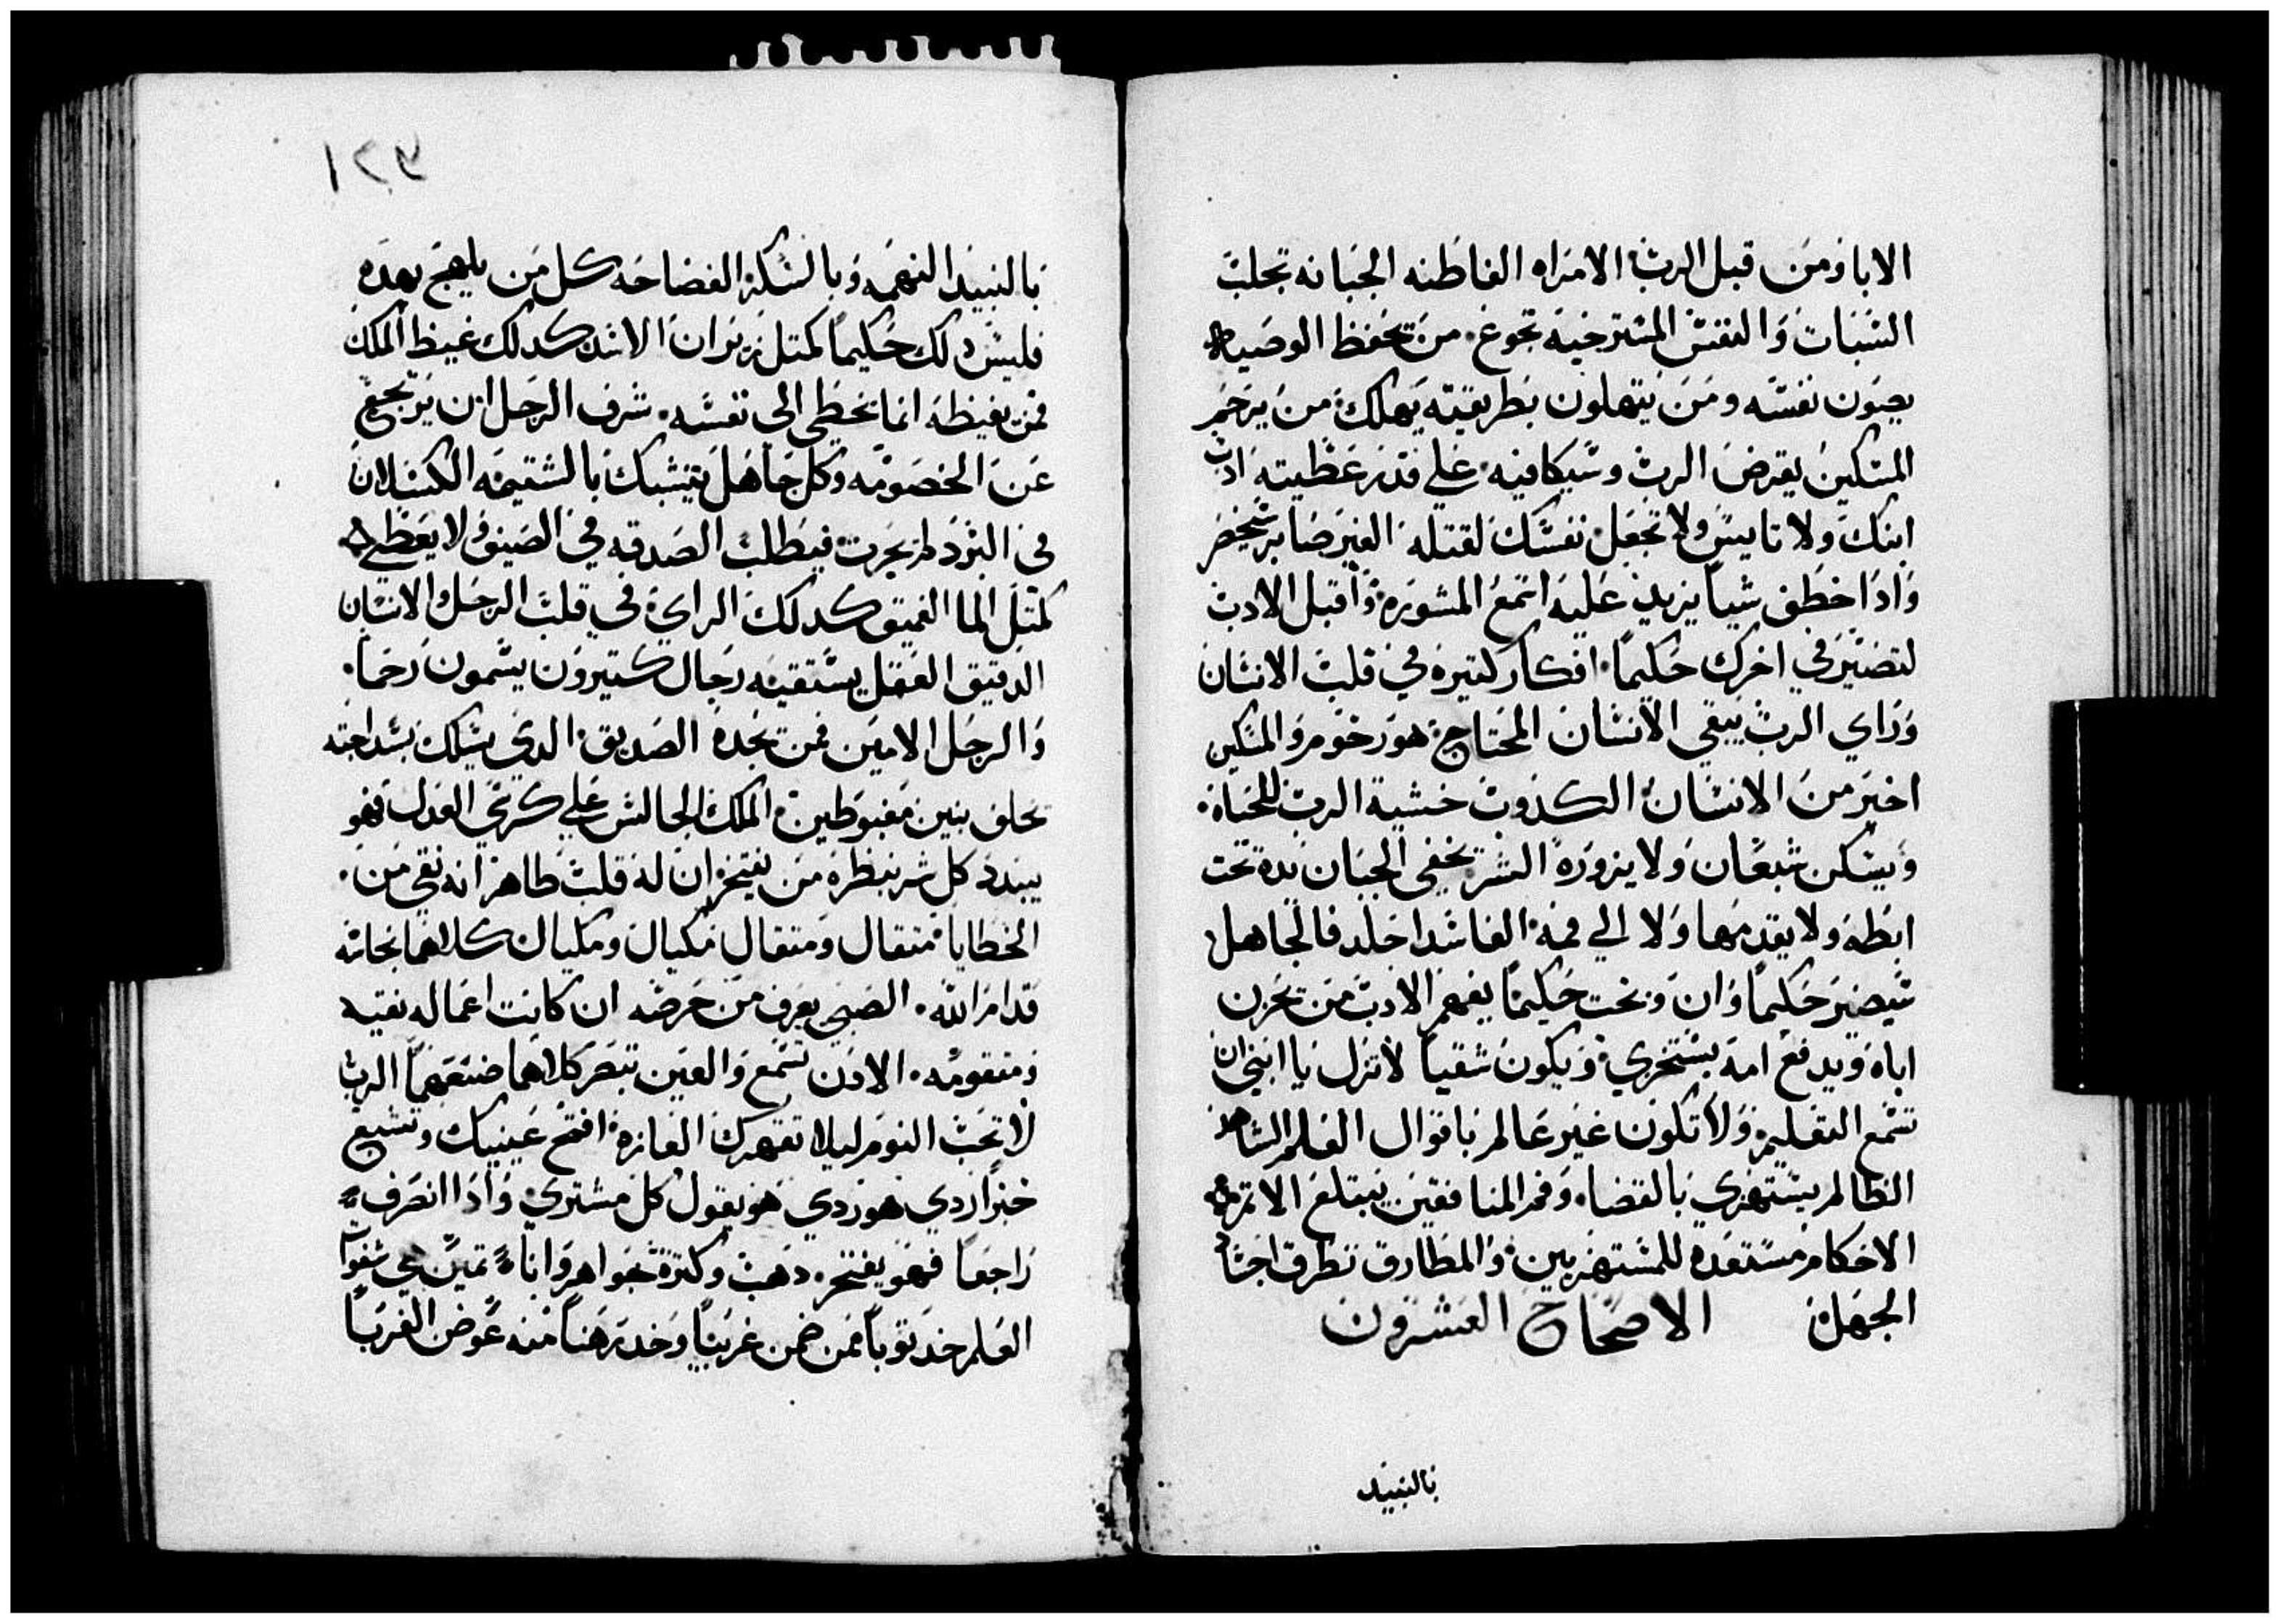 الابا ومن قبل الرب الامراه الفاطنه الجبانه تجلب
السبات والنفس المسترخيه تجوع من تحفظ الوصيه
يصون نفسه ومن يتهاون بطريقته يهلك من يرحم
المسكين يقرض الرب وسيكافيه علي قدر عطيته ادب
ابنك ولا تاييس ولا تجعل نفسك لقتله الغير صابر سيخسر
واذا خطف شيا يزيد عليه اسمع المشوره واقبل الادب
لتصير في اخرك حكيما افكار كتيره في قلب الانسان
وراي الرب يبقي الانسان المحتاج هو رحوم والمسكين
اخير من الانسان الكذوب خشية الرب للحياه
ويسكن شبعان ولا يزوره الشر يخفي الجبان يده تحت
ابطه ولا يقدمها ولا الي فمه الفاسد اجلد فالجاهل
سيصير حكيما وان وبخت حكيما يفهم الادب من يحزن
اباه ويدفع امه يستخري ويكون شقيا لا تزل يا ابني ان
تسمع التعليم ولا تكون غير عالم باقوال العلم الشاهد
الظالم يستهزي بالقضا وفم المنافقين يبتلع الاتم
الاحكام مستعده للمستهزيين والمطارق تطرق اجسا
الجهله الاصحاح العشرون
بالنبيد
٧٢١
بالنبيد النهمه وبالسكر الفضاحه كل من يلهج بهده
فليس دلك حكيما كمتل زيران الاسد كدلك غيظ الملك
فمن يغيظه انما يخطي الي نفسه شرف الرجل ان يرتجع
عن الخصومه وكل جاهل يتيشبك بالشتيمه الكسلان
في البرد لم يحرت فيطلب الصدقه في الصيف ولا يعطي له
كمتل الما العميق كدلك الراي في قلب الرجل والانسان
الدقيق العقل يستقيه رجال كتيرون يسمون رحما
والرجل الامين فمن يجده الصديق الدي يسلك بسداجته
يخلف بنين مغبوطين الملك الجالس علي كرسي العدل فهو
يبدد كل شر بنظره من يفتخر ان له قلب طاهر انه نقي من
الخطايا متقال ومتقال مكيال ومكيال كلاهما نجاسه
قدام الله الصبي يعرف من حرصه ان كانت اعماله نقيه
ومتقومه الادن تسمع والعين تبصر كلاهما صنعهما الرب
لا تحب النوم ليلا تقهرك الفازه افتح عينيك وتشبع
خبزا ردي هو ردي هو يقول كل مشتري واذا انصرف
راجعا فهو يفتخر دهب وكترة جواهر واناء تمين هي شفوات
العلم خد توبا ممن ضمن غريبا وخد رهنا منه عوض الغربا